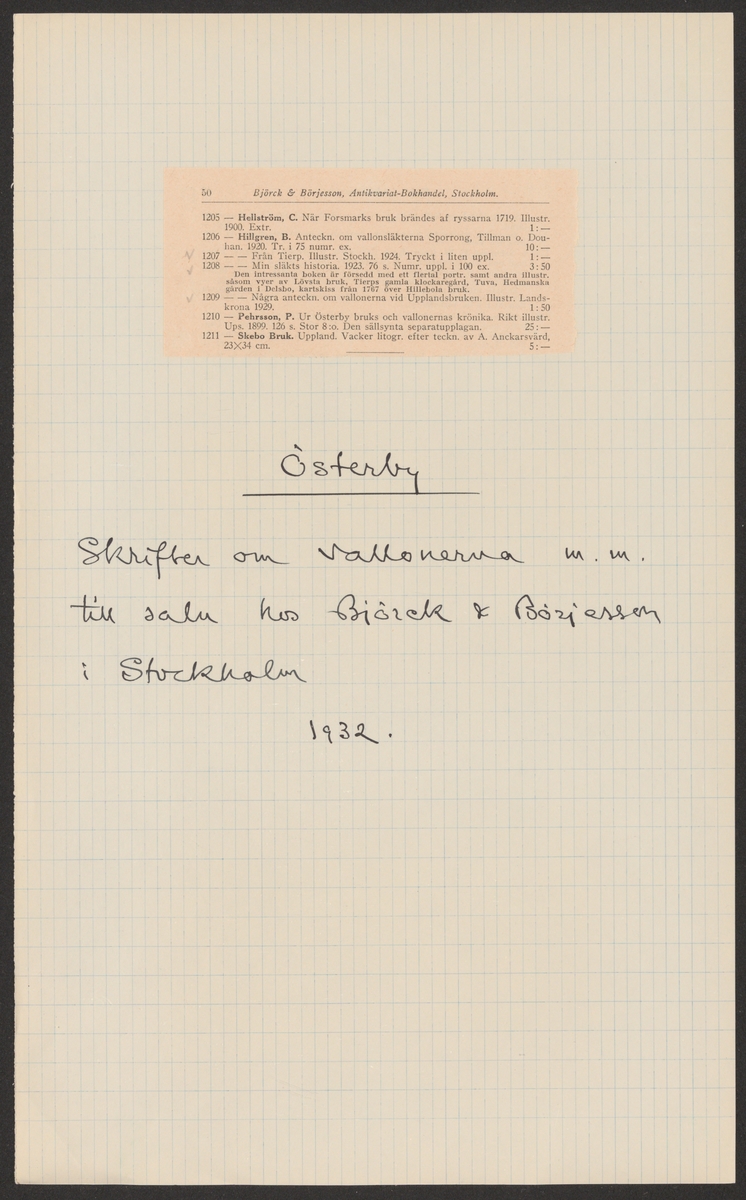 50 Björck & Börjesson, Antikvariat-Bokhandel, Stockholm.
1205 — Hellström, C. När Forsmarks bruk brändes af ryssarna 1719. Illustr.
1900. Extr. 1: —
1206 — Hillgren, B. Anteckn. om vallonsläkterna Sporrong, Tillman o. Dou-
han. 1920. Tr. i 75 numr. ex. 10: —
1207 — — Från Tierp. Illustr. Stockh. 1924. Tryckt i liten uppl. 1: —
1208 — — Min släkts historia. 1923. 76 s. Numr. uppl. i 100 ex. 3: 50
Den intressanta boken är försedd med ett flertal portr. samt andra illustr.
såsom vyer av Lövsta bruk, Tierps gamla klockaregård, Tuva, Hedmanska
gården i Delsbo, kartskiss från 1767 över Hillebola bruk.
1209 — — Några anteckn. om vallonerna vid Upplandsbruken. Illustr. Lands-
krona 1929. 1: 50
1210 — Pehrsson, P. Ur Österby bruks och vallonernas krönika. Rikt illustr.
Ups. 1899. 126 s. Stor 8:o. Den sällsynta separatupplagan. 25: —
1211 — Skebo Bruk. Uppland. Vacker litogr. efter teckn. av A. Anckarsvärd,
23×34 cm. 5: —
Österby
Skrifter om Vallonerna m. m.
till salu hos Björck & Börjesson
i Stockholm
1932.